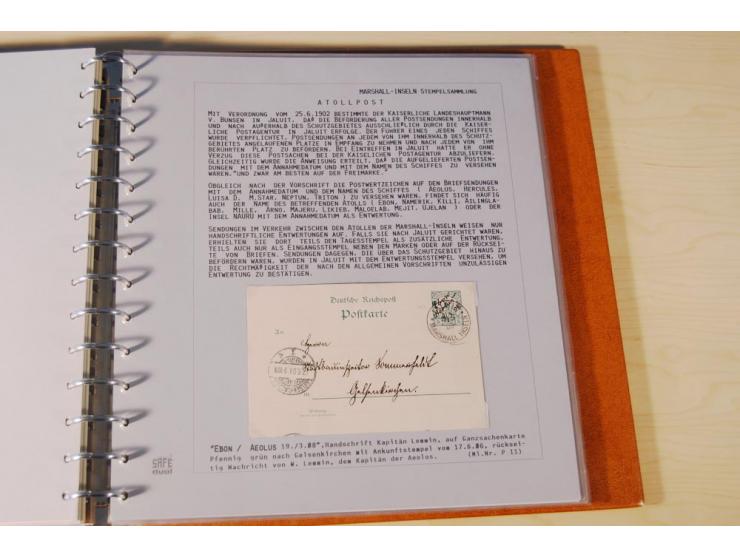 MARSHALL-INSELN STEMPELSAMMLUNG
ATOLLPOST
MIT VERORDNUNG VOM 25.6.1902 BESTIMMTE DER KAISERLICHE LANDESHAUPTMANN
V. BUNSEN IN JALUIT, DAß DIE BEFÖRDERUNG ALLER POSTSENDUNGEN INNERHALB
UND NACH AUßERHALB DES SCHUTZGEBIETES AUSSCHLIEßLICH DURCH DIE KAISER-
LICHE POSTAGENTUR IN JALUIT ERFOLGE. DER FÜHRER EINES JEDEN SCHIFFES
WURDE VERPFLICHTET, POSTSENDUNGEN AN JEDEM VON IHM INNERHALB DES SCHUTZ-
GEBIETES ANGELAUFENEN PLATZE IN EMPFANG ZU NEHMEN UND NACH JEDEM VON IHM
BERÜHRTEN PLATZ ZU BEFÖRDERN. BEI EINTREFFEN IN JALUIT HATTE ER OHNE
VERZUG DIESE POSTSACHEN BEI DER KAISELICHEN POSTAGENTUR ABZULIEFERN.
GLEICHZEITIG WURDE DIE ANWEISUNG ERTEILT, DAß DIE AUFGELIEFERTEN POSTSEN-
DUNGEN MIT DEM ANNAHMEDATUM UND MIT DEM NAMEN DES SCHIFFES ZU VERSEHEN
WAREN."UND ZWAR AM BESTEN AUF DER FREIMARKE."
OBGLEICH NACH DER VORSCHRIFT DIE POSTWERTZEICHEN AUF DEN BRIEFSENDUNGEN
MIT DEM ANNAHMEDATUM UND DEM NAMEN DES SCHIFFES ( AEOLUS, HERCULES,
LUISA D., M.STAR, NEPTUN, TRITON ) ZU VERSEHEN WAREN, FINDET SICH HÄUFIG
AUCH DER NAME DES BETREFFENDEN ATOLLS ( EBON, NAMERIK, KILLI, AILINGLA-
BAB, MILLE, ARNO, MAJERU, LIKIEB, MALOELAB, MEJIT, UJELAN ) ODER DER
INSEL NAURU MIT DEM ANNAHMEDATUM ALS ENTWERTUNG.
SENDUNGEN IM VERKEHR ZWISCHEN DEN ATOLLEN DER MARSHALL-INSELN WEISEN NUR
HANDSCHRIFTLICHE ENTWERTUNGEN AUF. FALLS SIE NACH JALUIT GERICHTET WAREN,
ERHIELTEN SIE DORT TEILS DEN TAGESSTEMPEL ALS ZUSÄTZLICHE ENTWERTUNG,
TEILS AUCH NUR ALS EINGANGSSTEMPEL NEBEN DEN MARKEN ODER AUF DER RÜCKSEI-
TE VON BRIEFEN. SENDUNGEN DAGEGEN, DIE ÜBER DAS SCHUTZGEBIET HINAUS ZU
BEFÖRDERN WAREN, WURDEN IN JALUIT MIT DEM ENTWERTUNGSSTEMPEL VERSEHEN, UM
DIE RECHTMÄßIGKEIT DER NACH DEN ALLGEMEINEN VORSCHRIFTEN UNZULÄSSIGEN
ENTWERTUNG ZU BESTÄTIGEN.
Deutsche Reichspost
Postkarte
An
Herrn
Sommerfeldt
Gelsenkirchen.
in
MARSHALL INSELN
"EBON / AEOLUS 19./3.08",Handschrift Kapitän Lemmin, auf Ganzsachenkarte
Pfennig grün nach Gelsenkirchen mit Ankunftstempel vom 17.6.06, rücksei-
tig Nachricht von W. Lemmin, dem Kapitän der Aeolus. (Mi.Nr. P 11)
SAFE
dual